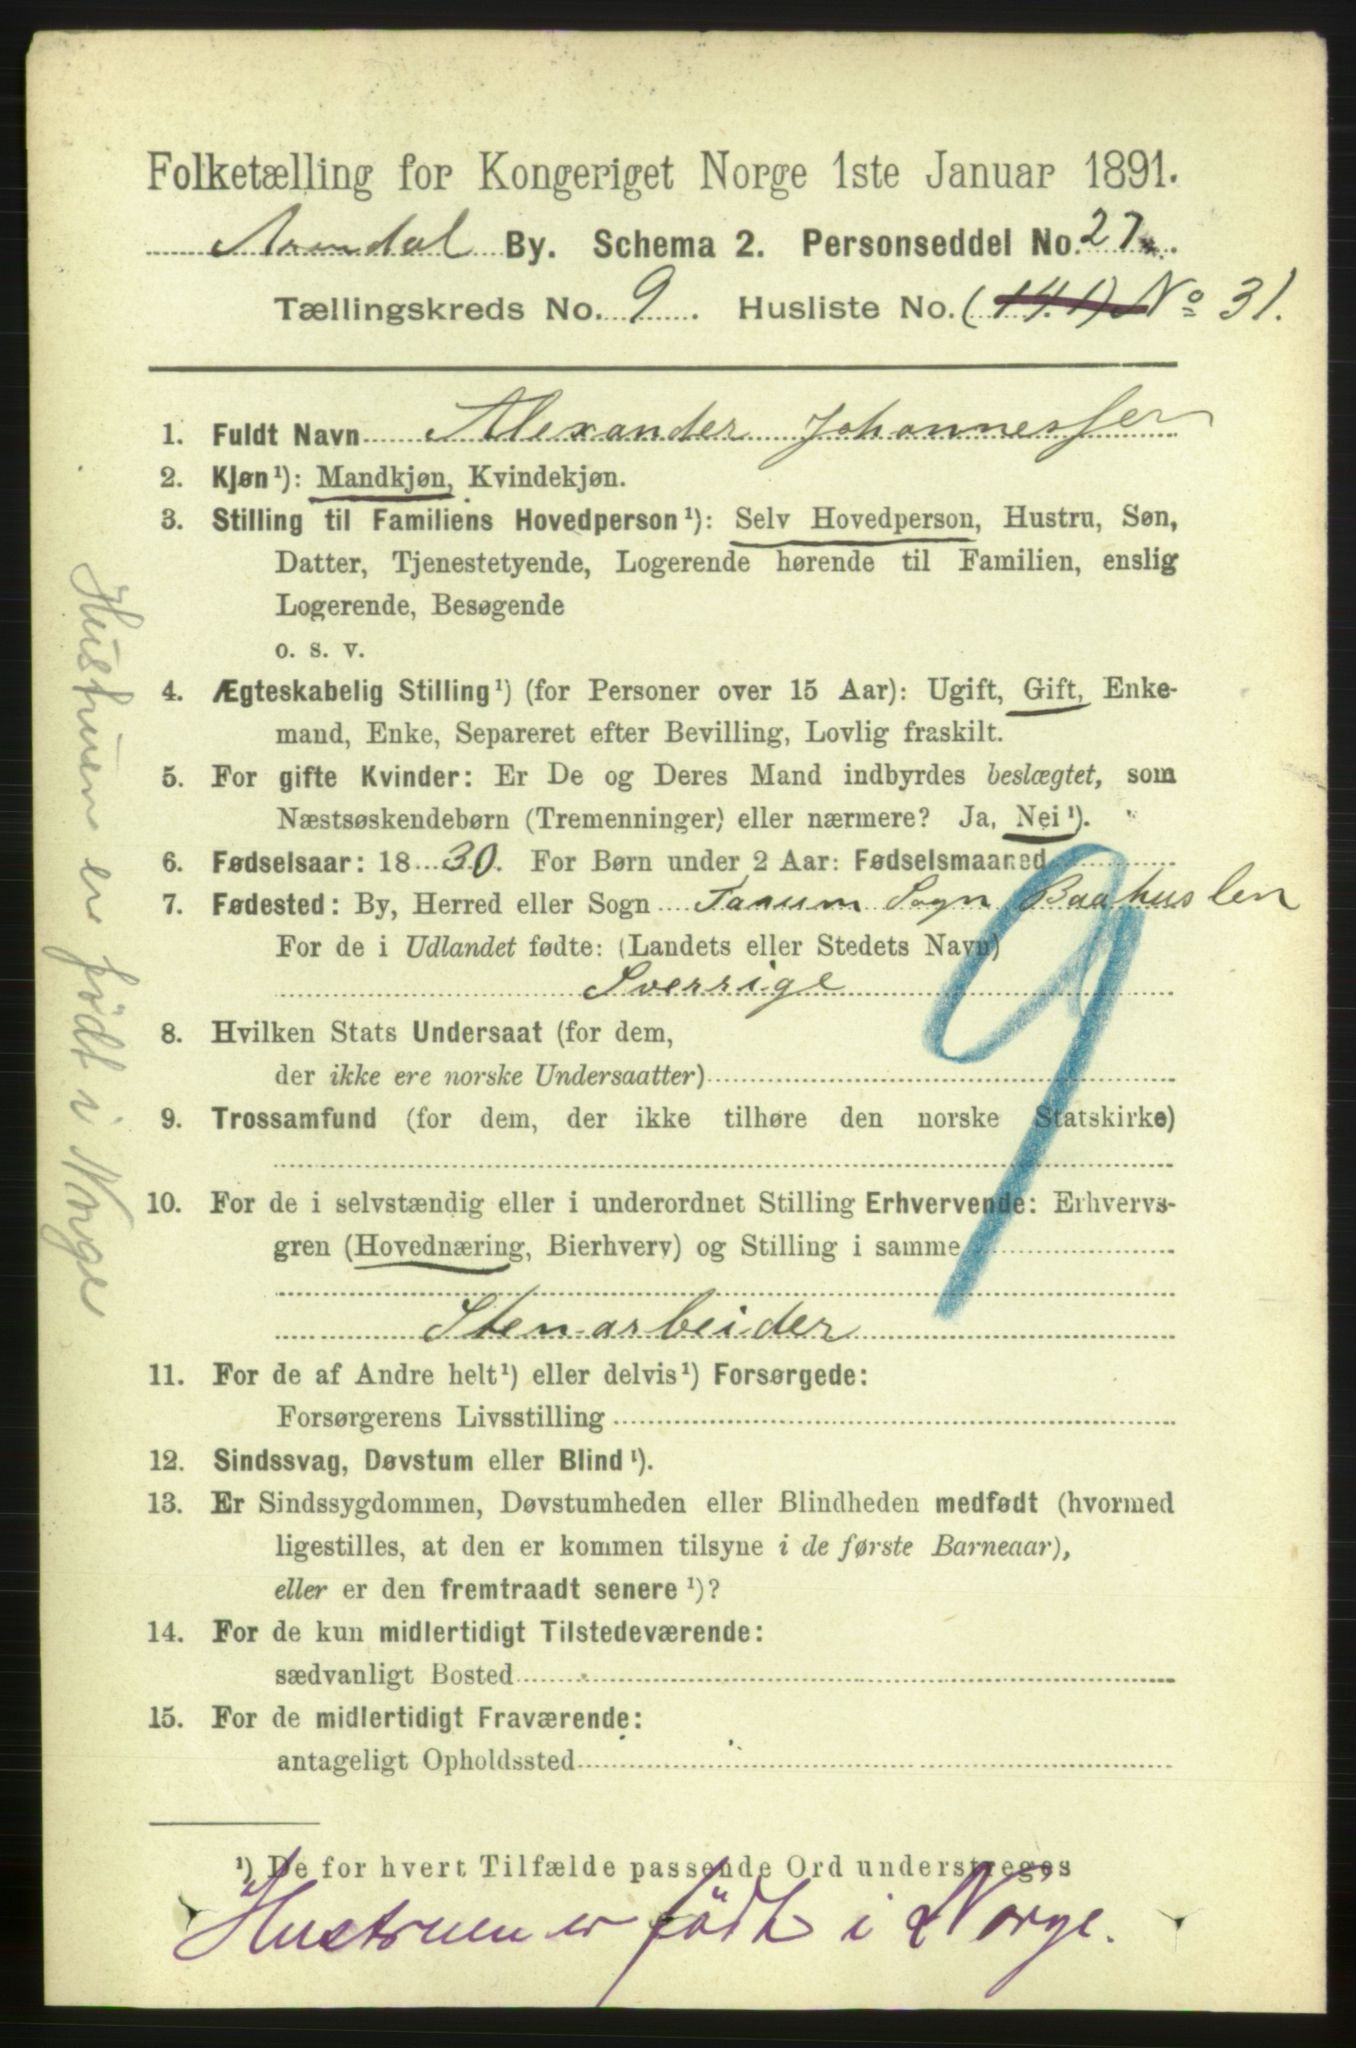 Folketælling for Kongeriget Norge 1ste Januar 1891.
Arendal By. Schema 2. Personseddel No. 27.
Tællingskreds No. 9. Husliste No. (141) No 31.
1. Fuldt Navn Alexander Johannessen
2. Kjøn¹): Mandkjøn, Kvindekjøn.
3. Stilling til Familiens Hovedperson¹): Selv Hovedperson, Hustru, Søn,
Datter, Tjenestetyende, Logerende hørende til Familien, enslig
Logerende, Besøgende
o. s. v.
4. Ægteskabelig Stilling¹) (for Personer over 15 Aar): Ugift, Gift, Enke-
mand, Enke, Separeret efter Bevilling, Lovlig fraskilt.
5. For gifte Kvinder: Er De og Deres Mand indbyrdes beslægtet, som
Næstsøskendebørn (Tremenninger) eller nærmere? Ja, Nei¹).
6. Fødselsaar: 1830. For Børn under 2 Aar: Fødselsmaaned
7. Fødested: By, Herred eller Sogn Tanum Sogn Baahuslen
For de i Udlandet fødte: (Landets eller Stedets Navn)
Sverrige
8. Hvilken Stats Undersaat (for dem,
der ikke ere norske Undersaatter)
9. Trossamfund (for dem, der ikke tilhøre den norske Statskirke)
10. For de i selvstændig eller i underordnet Stilling Erhvervende: Erhvervs-
gren (Hovednæring, Bierhverv) og Stilling i samme
Stenarbeider
11. For de af Andre helt¹) eller delvis¹) Forsørgede:
Forsørgerens Livsstilling
12. Sindssvag, Døvstum eller Blind¹).
13. Er Sindssygdommen, Døvstumheden eller Blindheden medfødt (hvormed
ligestilles, at den er kommen tilsyne i de første Barneaar),
eller er den fremtraadt senere¹)?
14. For de kun midlertidigt Tilstedeværende:
sædvanligt Bosted
15. For de midlertidigt Fraværende:
antageligt Opholdssted
¹) De for hvert Tilfælde passende Ord understreges
Hustruen er född i Norge.
Hustruen er född i Norge
9